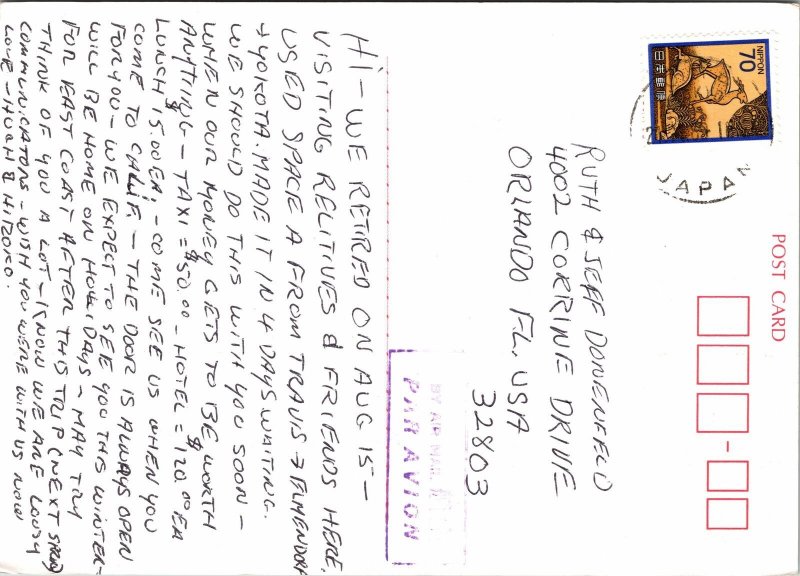 HI - WE RETIRED ON AUG 15 -
VISITING RELITIVES & FRIENDS HERE.
USED SPACE A FROM TRAVIS → ELMENDORF
→ YOKOTA. MADE IT IN 4 DAYS WAITING.
WE SHOULD DO THIS WITH YOU SOON -
WHEN OUR MONEY GETS TO BE WORTH
ANYTHING - TAXI = $50.00 - HOTEL = $120.00 EA
LUNCH 15.00 EA. - COME SEE US WHEN YOU
COME TO CALIF - THE DOOR IS ALWAYS OPEN
FOR YOU - WE EXPECT TO SEE YOU THIS WINTER -
WILL BE HOME ON HOLIDAYS - MAY TRY
FOR EAST COAST AFTER THIS TRIP (NEXT SPRING)
THINK OF YOU A LOT - KNOW WE ARE LOUSY
COMMUNICATORS - WISH YOU WERE WITH US NOW
LOVE - HUGH & HIROKO.
POST CARD
NIPPON
70
日本郵便
JAPAN
RUTH & JEFF DONENFELD
4002 CORRINE DRIVE
ORLANDO FL. USA
32803
BY AIR MAIL
PAR AVION